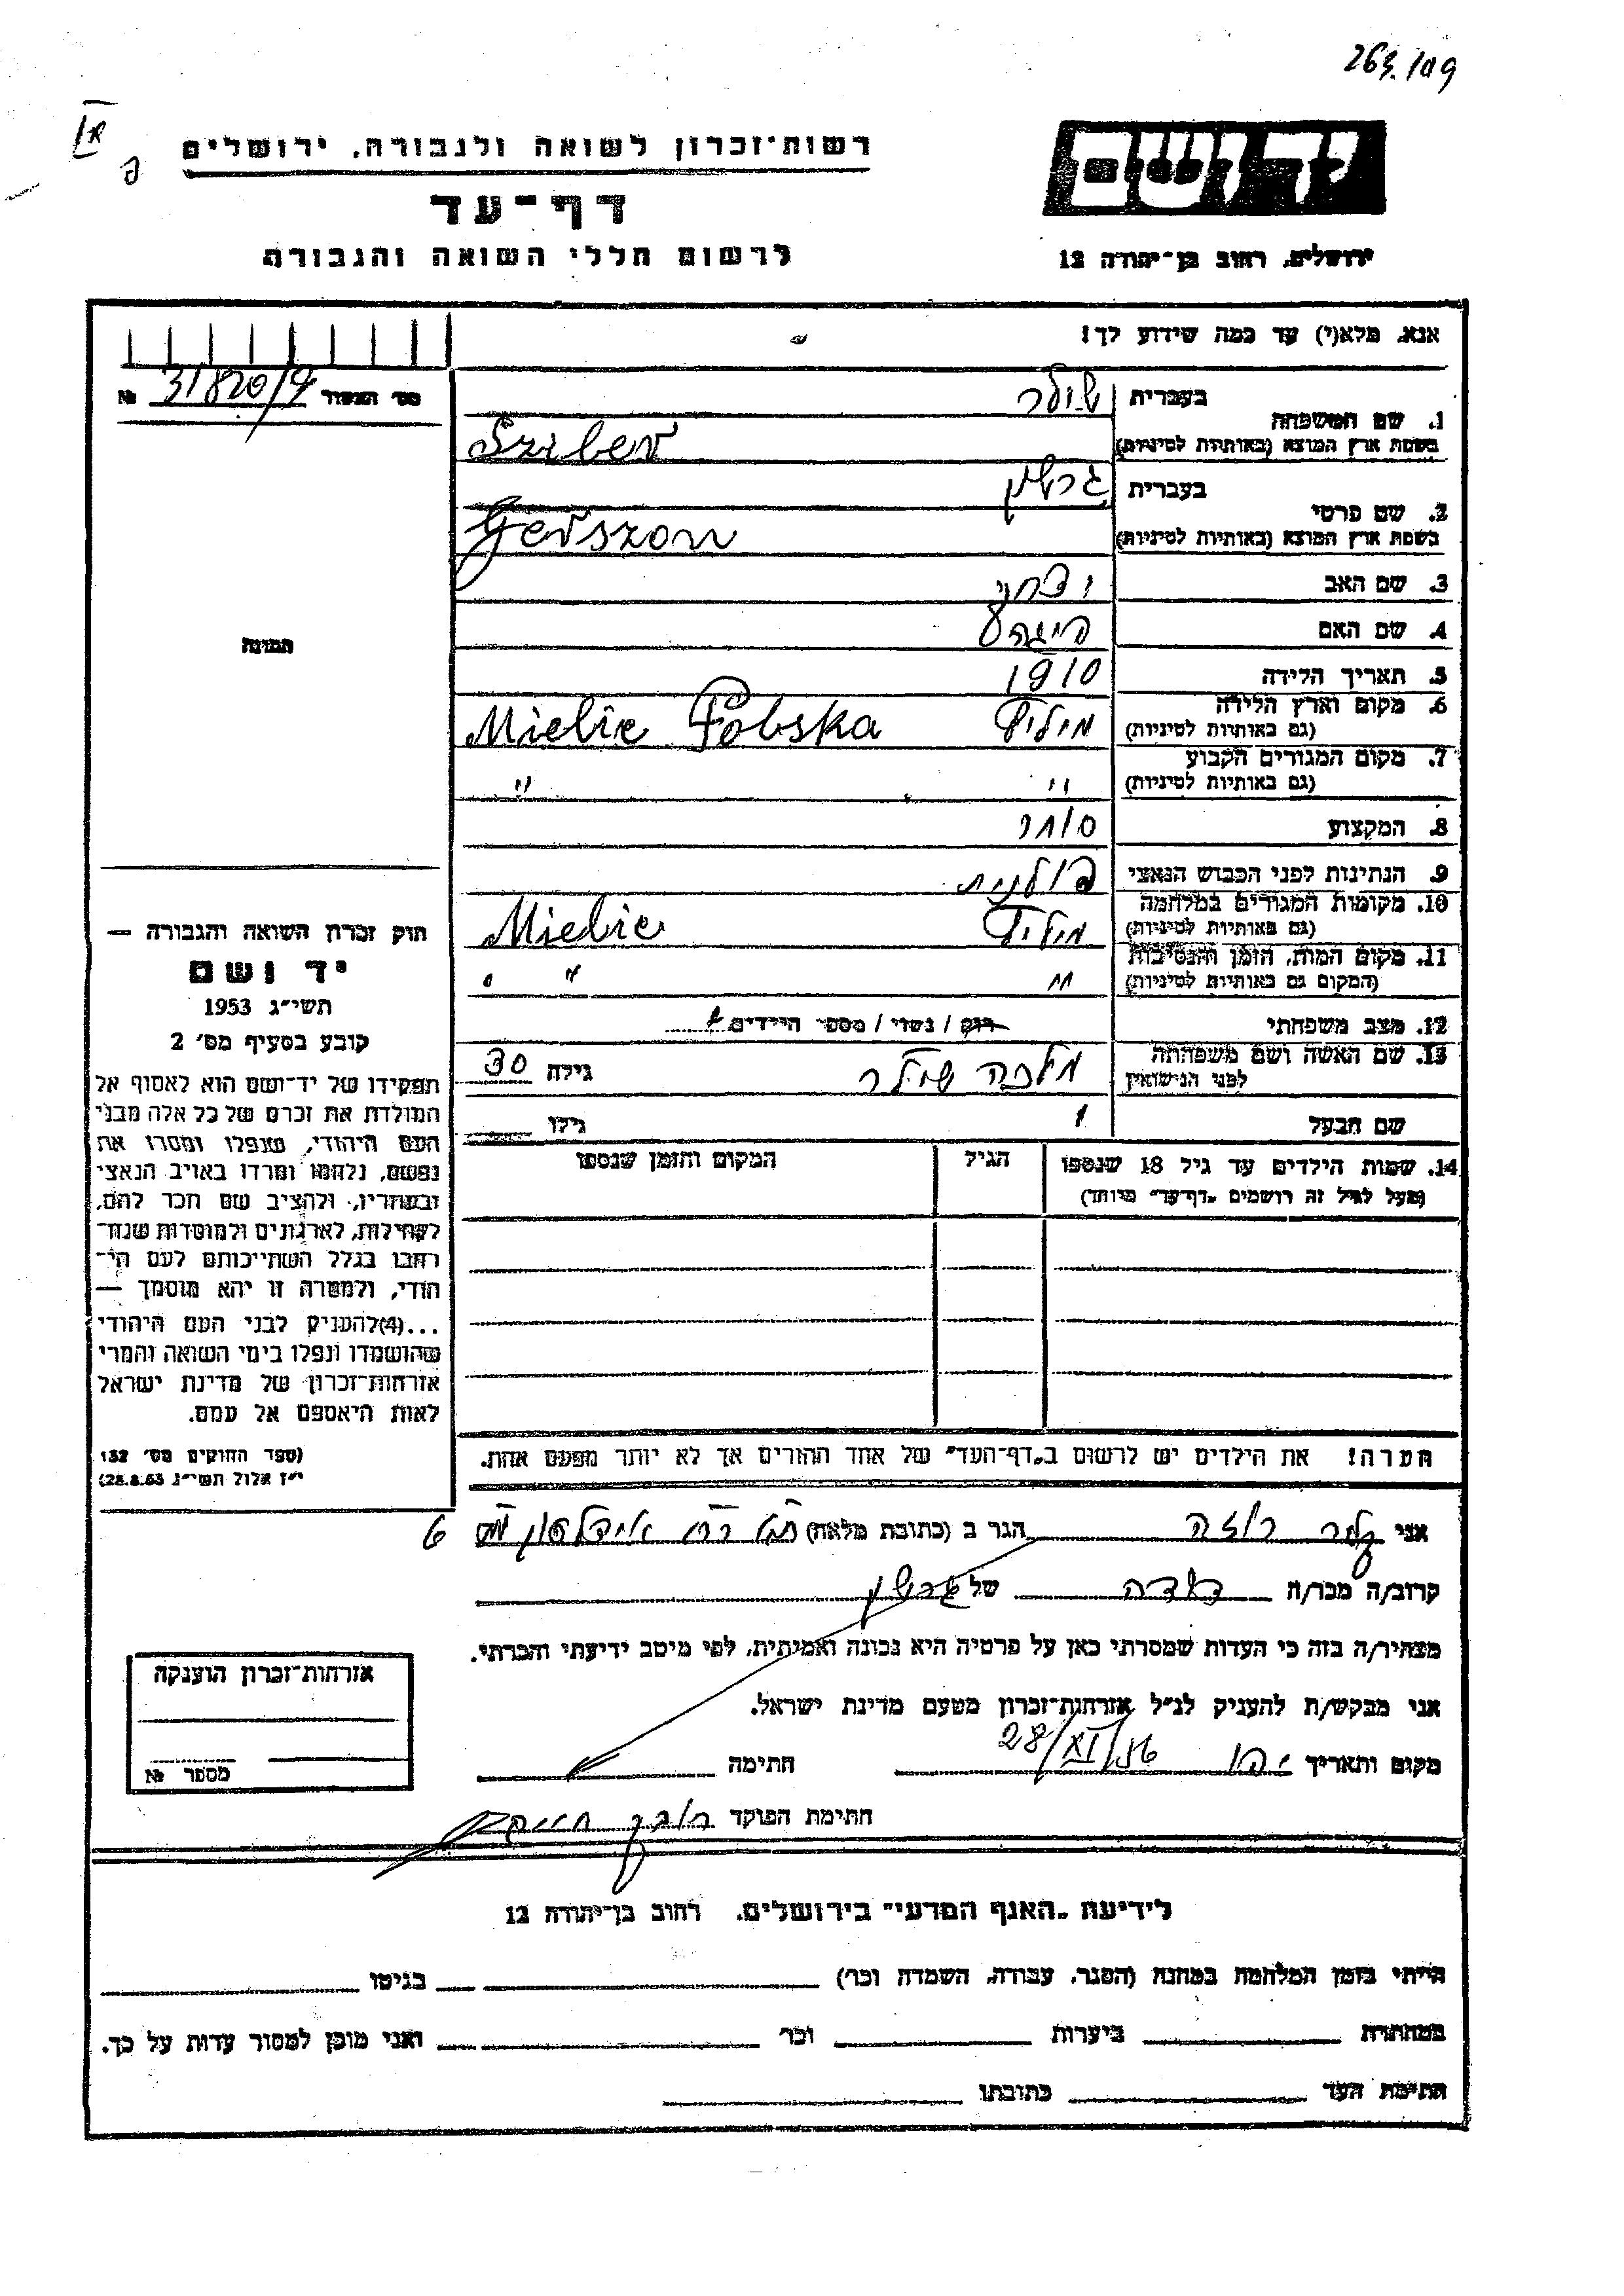 263/109
רשות־זכרון לשואה ולגבורה, ירושלים
דף־עד
לרשום חללי השואה והגבורה
יד ושם
ירושלים, רחוב בן־יהודה 12
אנא, מלא(י) עד כמה שידוע לך!
מס׳ האשור 31820/9 №
1. שם המשפחה
בעברית
בשפת ארץ המוצא (באותיות לטיניות) Sziber
2. שם פרטי
בעברית גרשון
בשפת ארץ המוצא (באותיות לטיניות) Gerszon
3. שם האב
4. שם האם
5. תאריך הלידה 1910
6. מקום וארץ הלידה
(גם באותיות לטיניות) Mielic Polska
7. מקום המגורים הקבוע
(גם באותיות לטיניות) " "
8. המקצוע סוחר
9. הנתינות לפני הכבוש הנאצי פולנית
10. מקומות המגורים במלחמה
(גם באותיות לטיניות) Mielic
11. מקום המות, הזמן והנסיבות
(המקום גם באותיות לטיניות) " "
12. מצב משפחתי רווק / נשוי / מספר הילדים
13. שם האשה ושם משפחתה
לפני הנישואין מלכה גילה 30
שם הבעל גילו
14. שמות הילדים עד גיל 18 שנספו
(מעל לגיל זה רושמים „דף־עד״ מיוחד)
הגיל
המקום והזמן שנספו
הערה! את הילדים יש לרשום ב„דף־העד״ של אחד ההורים אך לא יותר מפעם אחת.
תמונה
חוק זכרון השואה והגבורה —
יד ושם
תשי״ג 1953
קובע בסעיף מס׳ 2
תפקידו של יד־ושם הוא לאסוף אל
המולדת את זכרם של כל אלה מבני
העם היהודי, שנפלו ומסרו את
נפשם, נלחמו ומרדו באויב הנאצי
ובעוזריו, ולהציב שם וזכר להם,
לקהילות, לארגונים ולמוסדות שנח־
רבו בגלל השתייכותם לעם הי־
הודי, ולמטרה זו יהא מוסמך —
...(4)להעניק לבני העם היהודי
שהושמדו ונפלו בימי השואה והמרי
אזרחות־זכרון של מדינת ישראל
לאות היאספם אל עמם.
(ספר החוקים מס׳ 132
י״ז אלול תשי״ג 28.8.53)
אני רוזה הגר ב (כתובת מלאה) 6
קרוב/ה מכר/ה דודה של גרשון
מצהיר/ה בזה כי העדות שמסרתי כאן על פרטיה היא נכונה ואמיתית, לפי מיטב ידיעתי והכרתי.
אני מבקש/ת להעניק לנ״ל אזרחות־זכרון מטעם מדינת ישראל.
מקום ותאריך יפו 28/XI/56 חתימה
חתימת הפוקד
אזרחות־זכרון הוענקה
מספר №
לידיעת „האגף המדעי״ בירושלים, רחוב בן־יהודה 12
הייתי בזמן המלחמה במחנה (הסגר, עבודה, השמדה וכו׳) בגיטו
במחתרת ביערות וכו׳ ואני מוכן למסור עדות על כך.
חתימת העד כתובתו